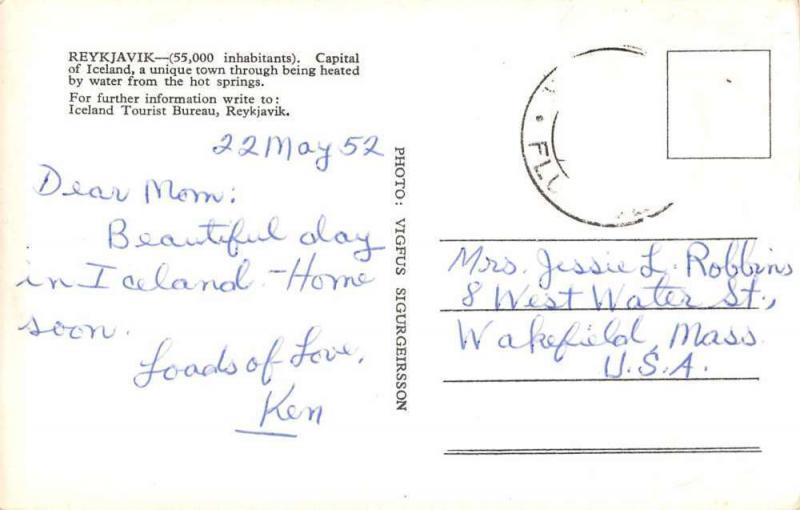 REYKJAVIK—(55,000 inhabitants). Capital
of Iceland, a unique town through being heated
by water from the hot springs.
For further information write to:
Iceland Tourist Bureau, Reykjavik.
22 May 52
Dear Mom:
Beautiful day
in Iceland - Home
soon.
Loads of Love,
Ken
PHOTO: VIGFUS SIGURGEIRSSON
Mrs. Jessie L. Robbins
8 West Water St.,
Wakefield, Mass.
U.S.A.